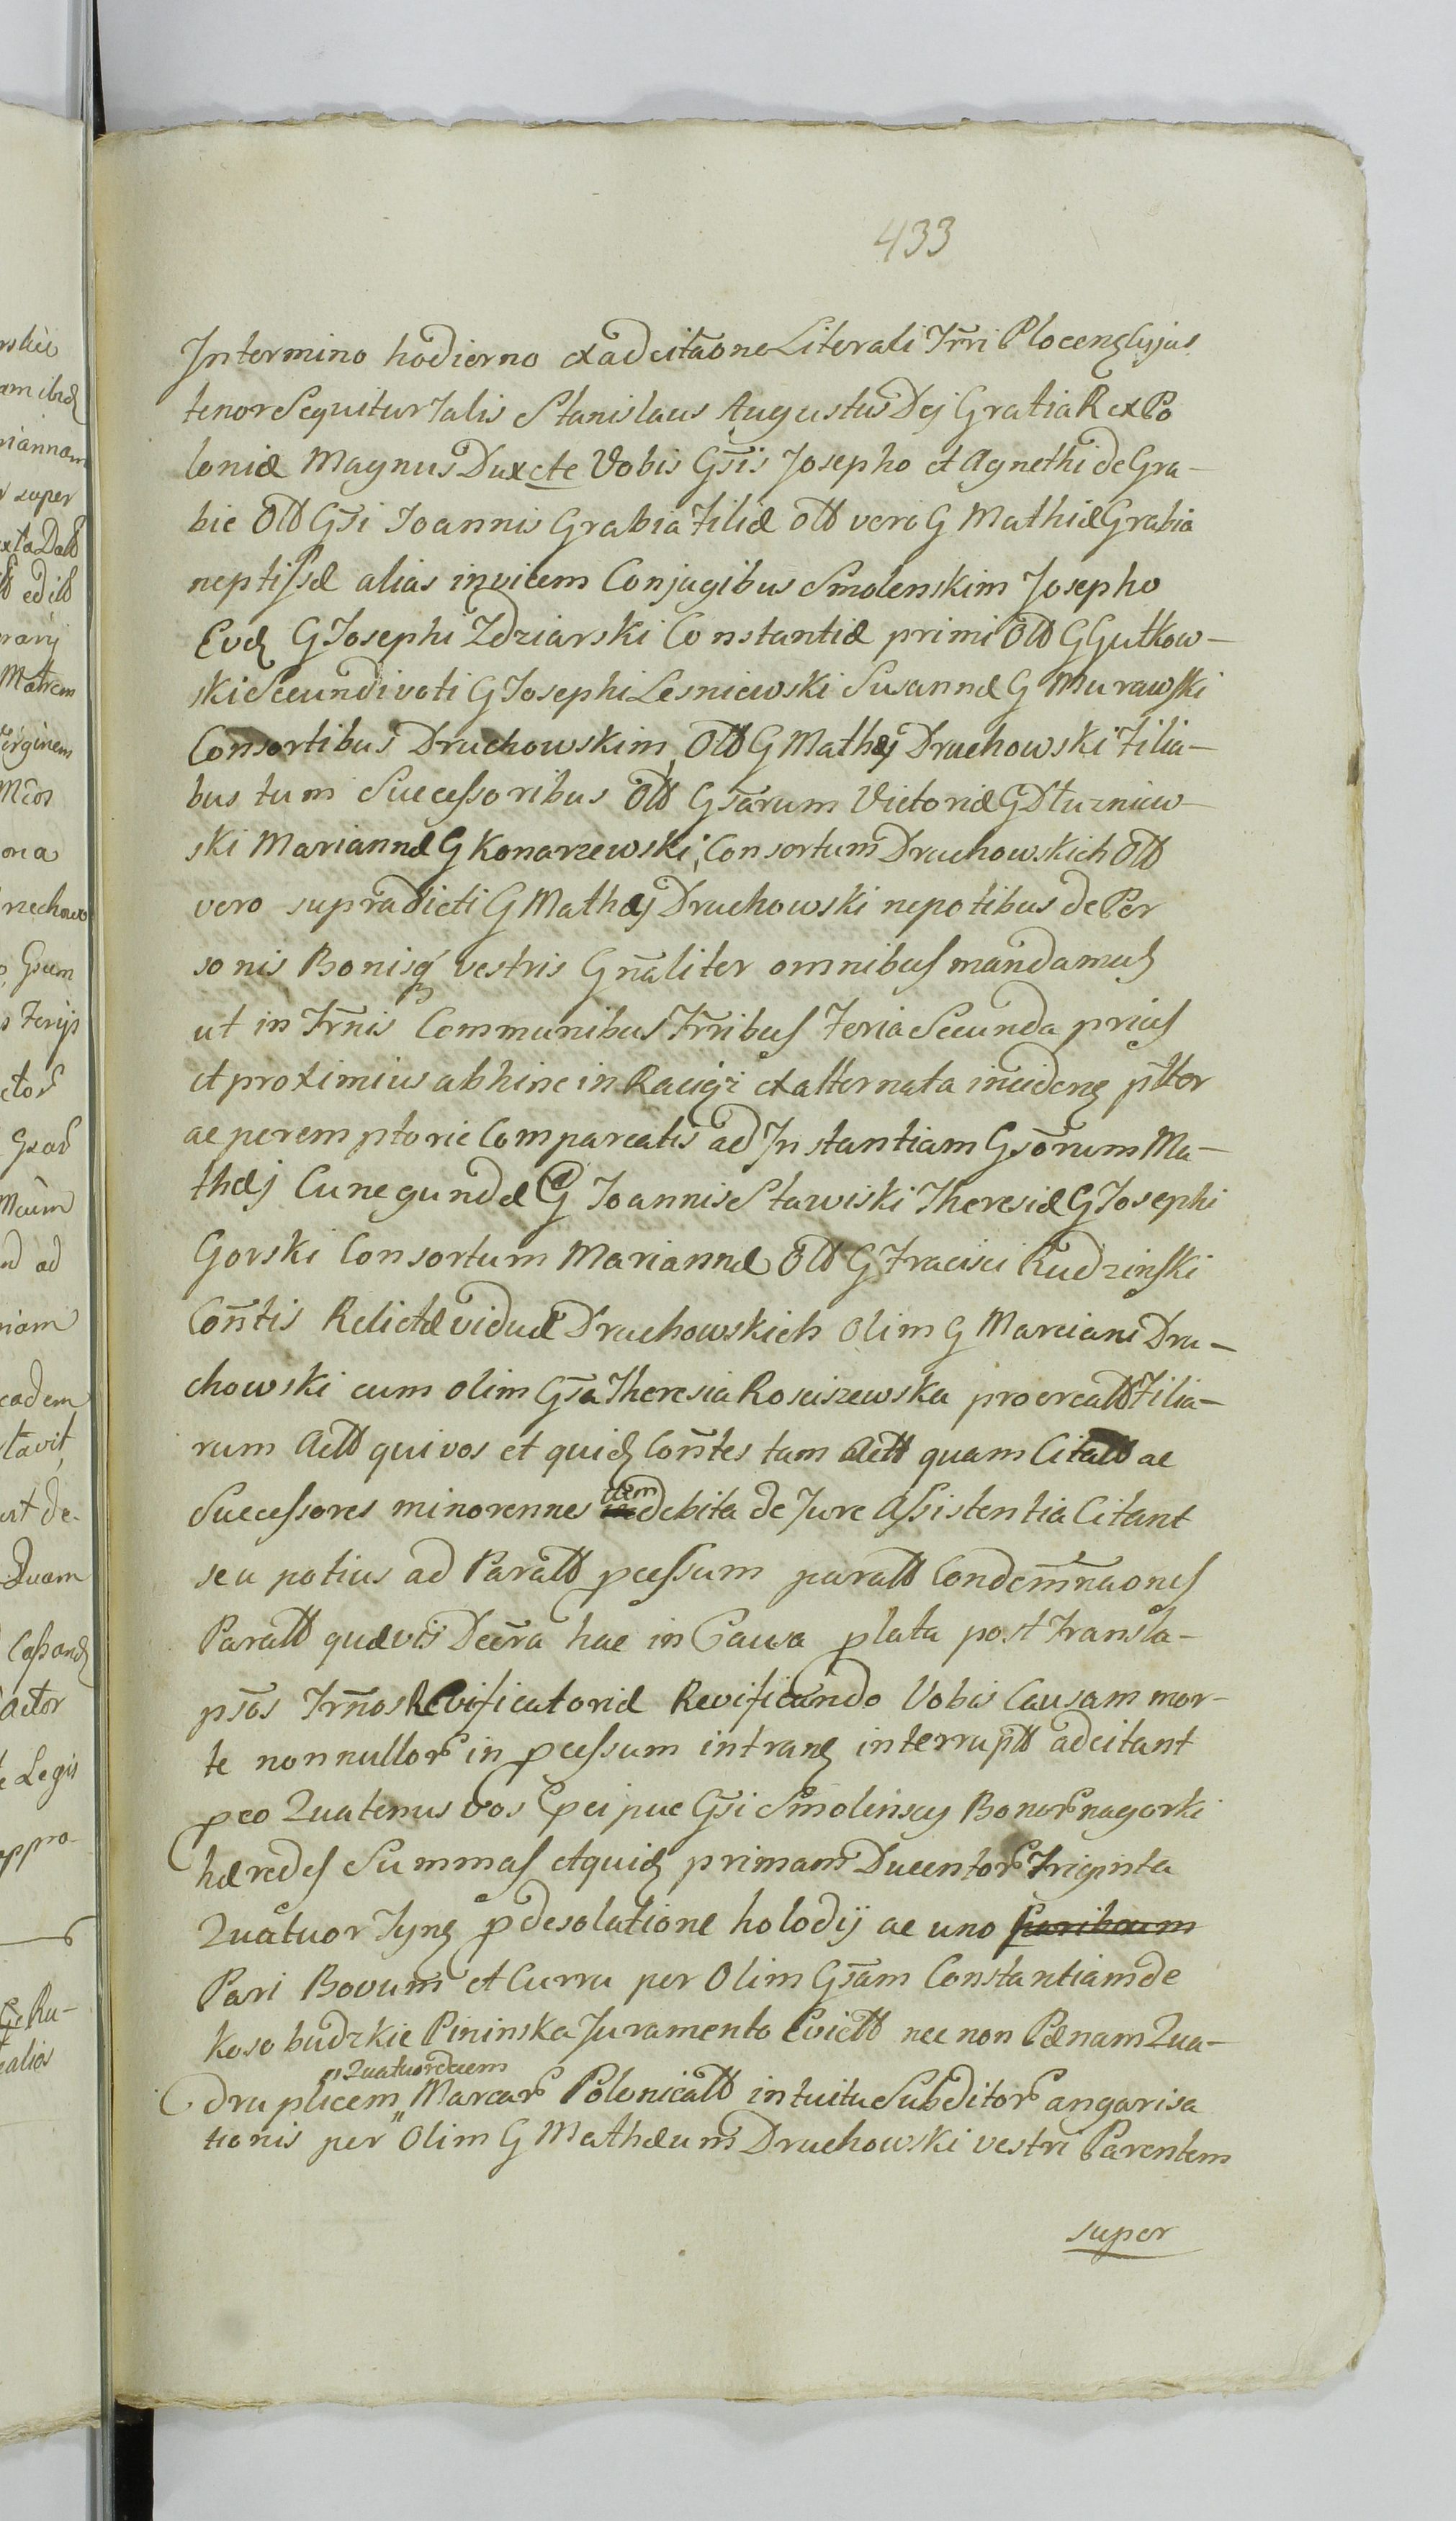 433
In termino hodierno ex adcitaone Literali Trri Plocens Cujus
tenor Sequitur Talis Stanislaus Augustus Dej Gratia Rex Po
loniæ Magnus Dux etc Vobis Gsis Josepho et Agnethi de Gra-
bie Olt Gsi Joannis Grabia Filiæ olt vero G Mathiæ Grabia
neptissæ alias invicem Conjugibus Smolenskim Josepho
G Josephi Zdziarski Constantiæ primi Olt G Gutkow-
ski Secundi voti G Josephi Lesniewski Susannæ G Murawski
Consortibus Druchowskim, Olt G Mathæj Druchowski Filia-
bus tum Successoribus Olt Gsarum Victoriæ G Dłuzniew-
ski Mariannæ G Konarzewski, Consortum Druchowskich Olt
vero supradicti G Mathæj Druchowski nepotibus de Per
sonis Bonisq vestris Gnaliter omnibus mandamus
ut in Trnis Communibus Trribus Feria Secunda prius
et proximius abhinc in Raciąz ex alternata incidens pltter
ac peremptorie Compareatis ad Instantiam Gsorum Ma-
thæj Cunegundæ G Joannis Stawiski Theresiæ G Josephi
Gorski Consortum Mariannæ Olt G Fracisci Rudzinski
Contis Relictæ viduæ Druchowskich Olim G Marciani Dru-
chowski cum olim Gsa Theresia Rosciszewska procreatt Filia-
rum Actt qui vos et quid Contes tam Actt quam Citatt ac
Successores minorennes cum debita de Jure Assistentia Citant
seu potius ad Paratt pcessum paratt Condemnaones
Paratt quævis Decra hac in Causa plata post Transla-
psos Trnos Revificatoriæ Revificando Vobis Causam mor-
te nonnullor in pcessum intrans interruptt adcitant
peo Quatenus vos Gsi Smolinscy Bonor nagorki
hæredes Summas et quid primam Ducentor Triginta
Quatuor Tyns p desolatione holodij ac uno
Pari Bovum et Curru per Olim Gsam Constantiam de
Kosobudzkie Pininska Juramento Evictt nec non Pænam Qua-
"Quatuordecem
druplicem " Marcar Polonicatt intuitu Subditor angarisa
tionis per Olim G Mathæum Druchowski vestri Parentem
super